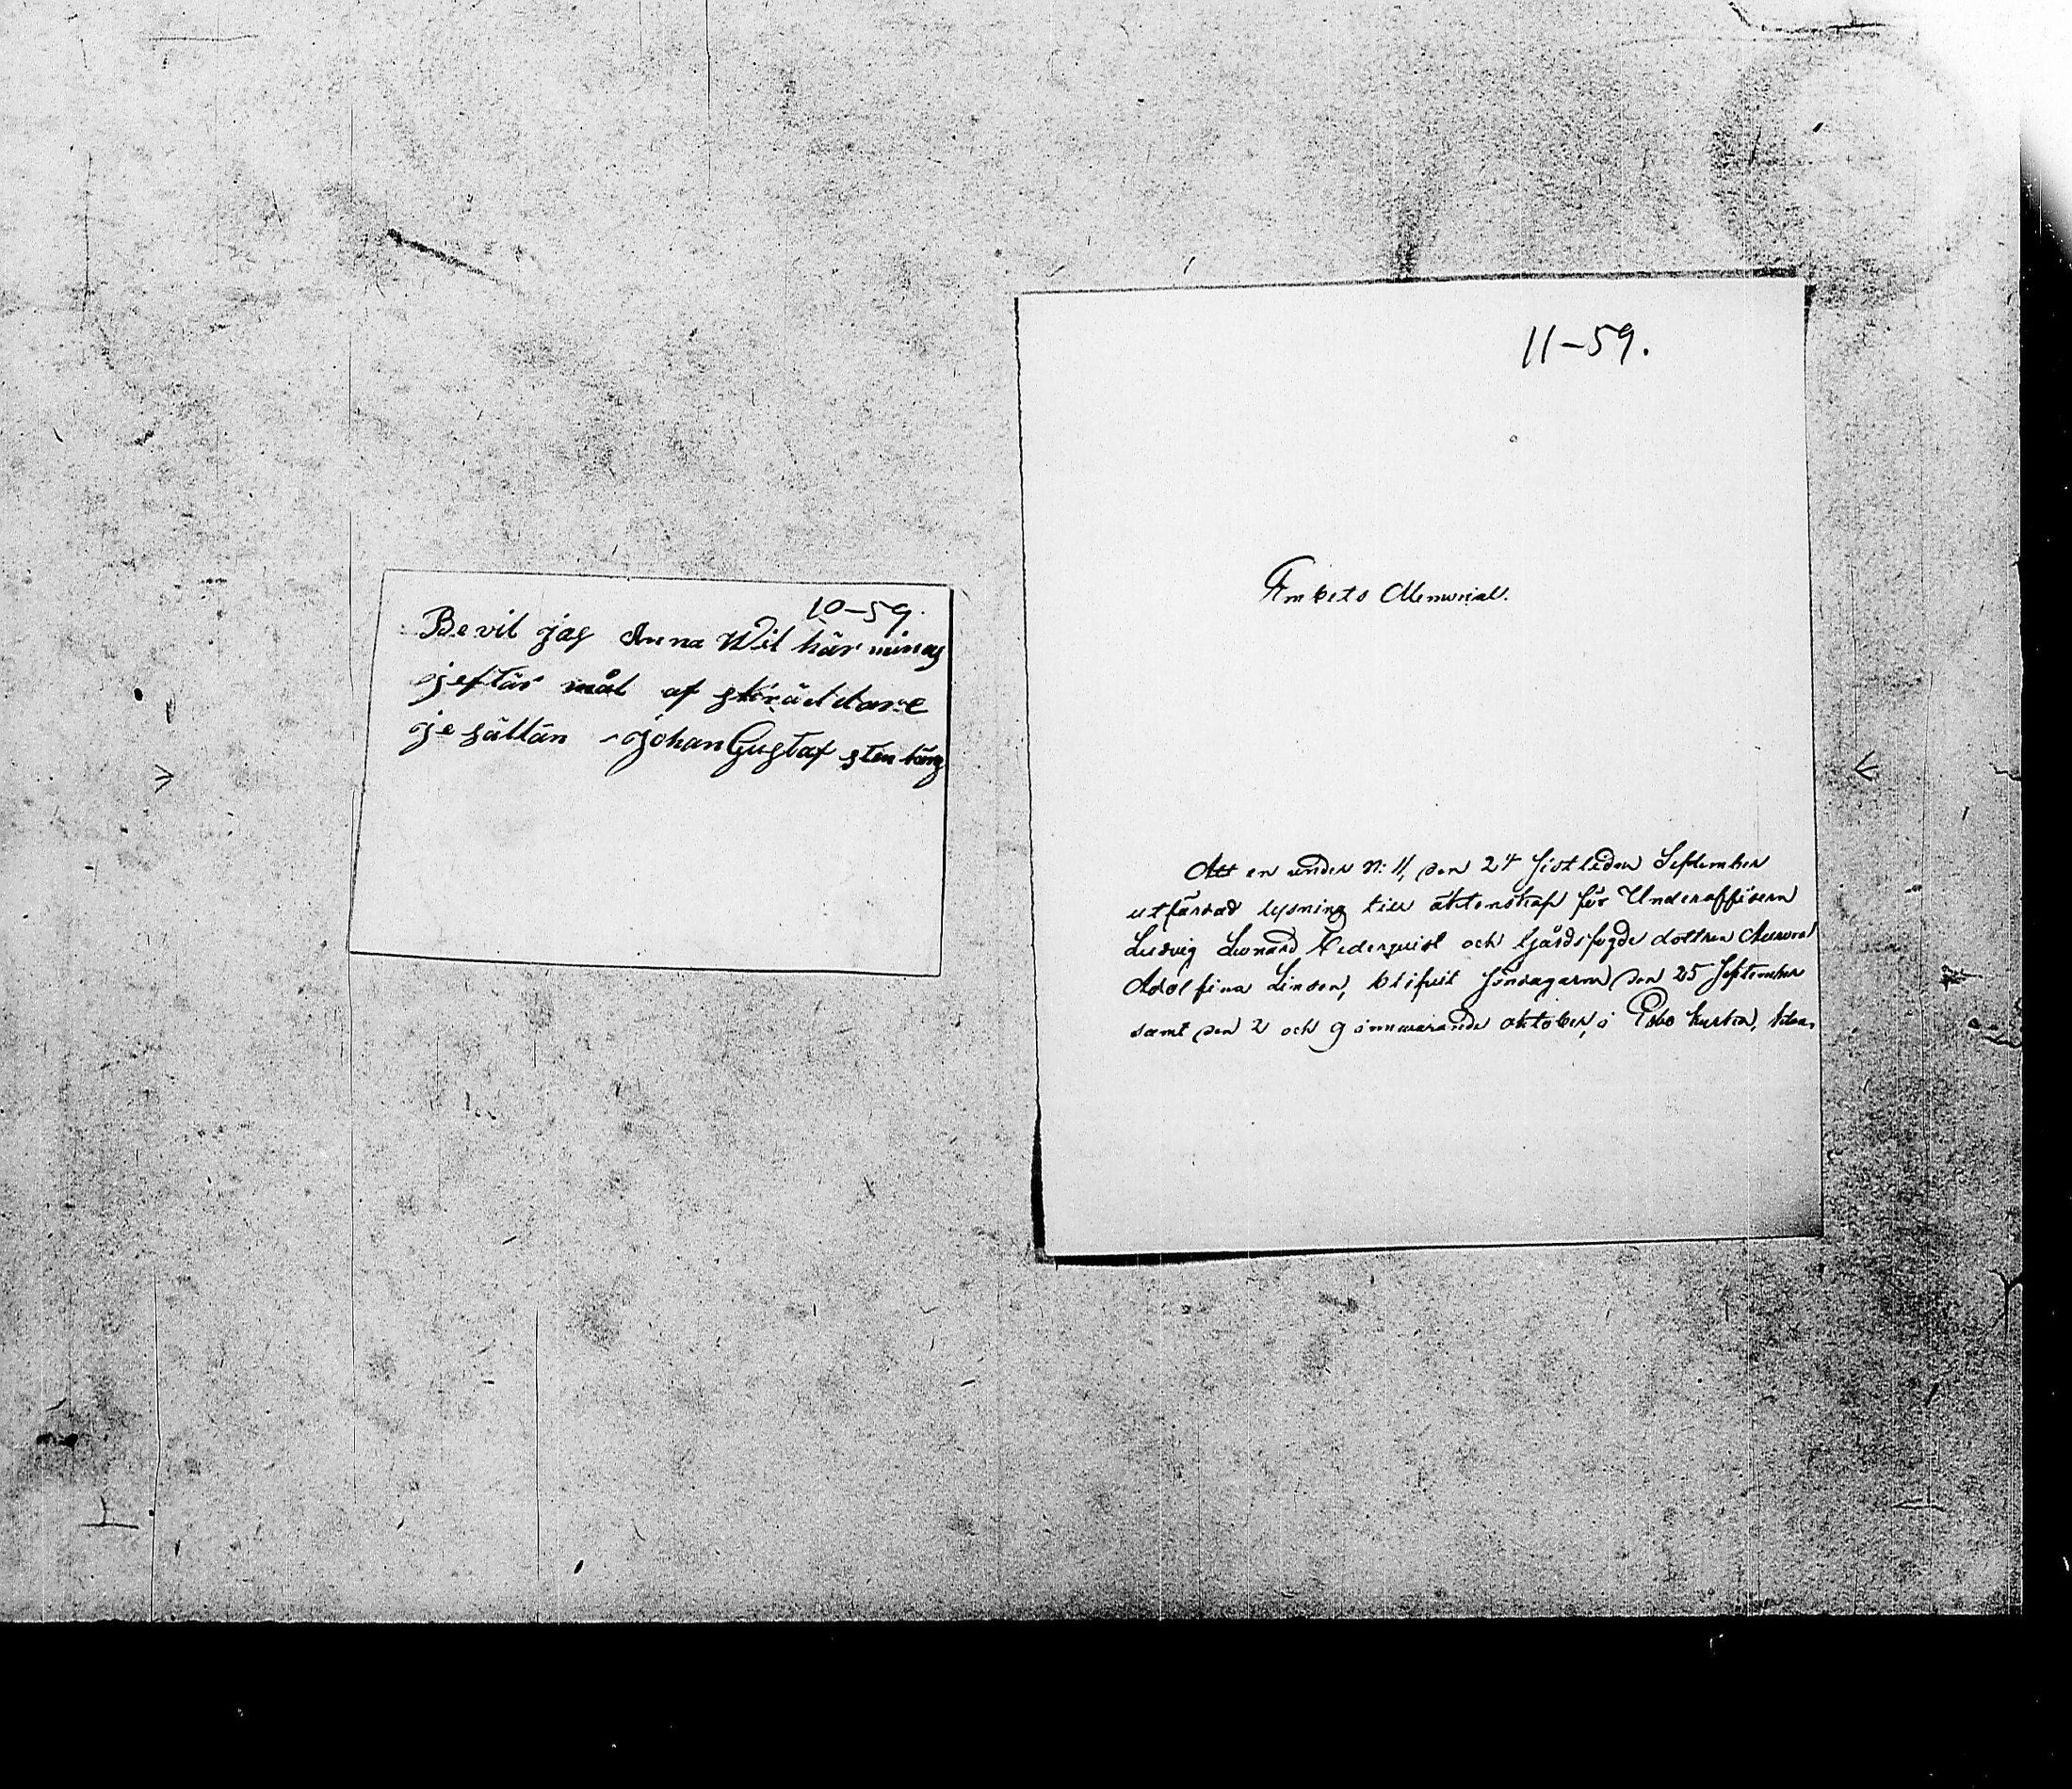 10-59.
Bevil jag Anna Wil här
jeftär mål af skräddare
je sällän Johan Gustaf sten bärg
11-59.
Embets Memorial.
Att en under N: 11, den 24 sistleden September
utfärdad lysning till äktenskap för Underofficern
Ludvig Leonard Cederqvist och Gårdsfogde dottren Aurora
Adolfina Linden, blifvit söndagarna den 25 September
samt den 2 och 9 innevarande oktober, i Esbo kyrka,